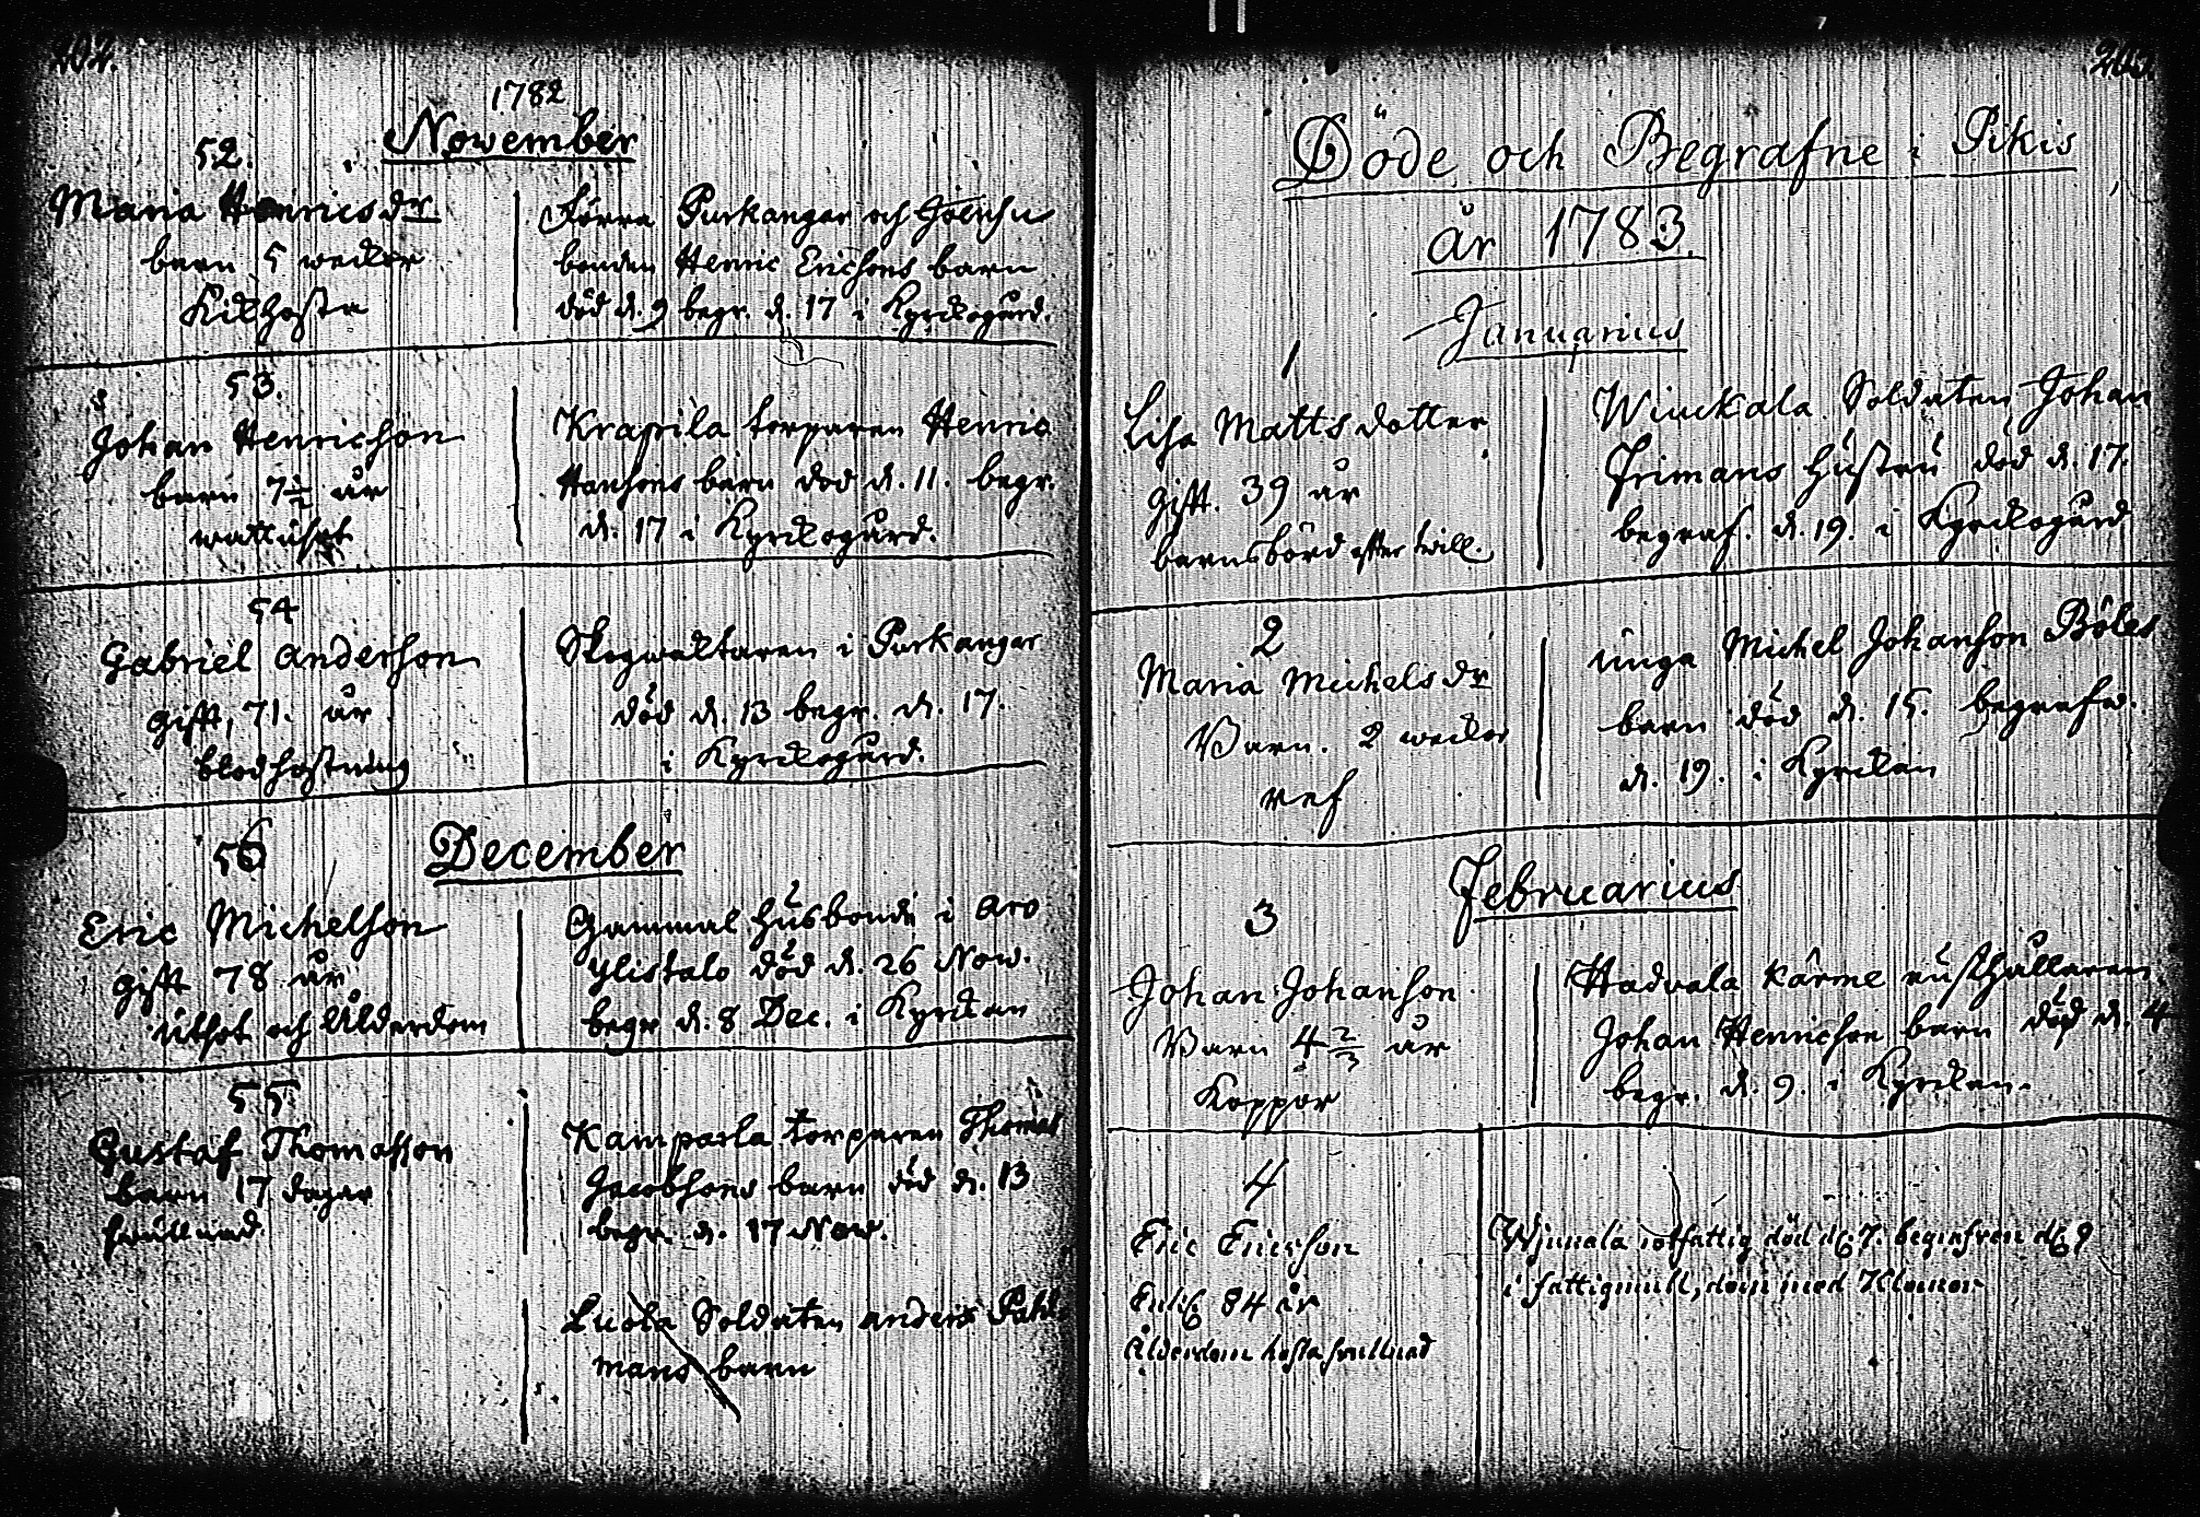 202.
1782
November
52.
Maria Henricsdr
barn 5 weckor
Kikhosta
Förra Purkangar och
bonden Henric Erichsons barn
död d. 9 begr. d. 17 i Kyrckogård.
53.
Johan Henrichson
barn 7½ år
wattusot
Krapila torparen Henric
Hansons barn död d. 11. begr.
d. 17 i Kyrckogård.
54
Gabriel Anderson
gift, 71. år
blodhostning
Skogwaktaren i Purkangar
död d. 13 begr. d. 17.
i Kyrckogård.
December
56
Eric Michelson
gift 78 år
utsot och ålderdom
Gammal husbonde i Aro
Ylistalo död d. 26 Now.
begr d. 8 Dec. i Kyrckan
55.
Gustaf Thomasson
barn 17 dagar
swullnad
Kamparla torparen Thomas
Jacobsons barn död d. 13
begr. d. 17 Now.
Luola Soldaten Anders Pahl
mans barn
203.
Döde och Begrafne i Pikis
år 1783.
Januarius
1
Lisa Mattsdotter
gift. 39 år
barnsbörd efter twill.
Winckala Soldaten Johan
Frimans hustru död d. 17.
begraf. d. 19. i Kyrckogård
2
Maria Michelsdr
Barn. 2 weckor
ref
unga Michel Johanson Böles
barn död d. 15. begrafw.
d. 19. i Kyrckan
Februarius
3
Johan Johanson
Barn 4 2/3 år
Koppor
Hadvala Kärme rusthållaren
Johan Henrichson barn död d. 4
begr. d. 9. i Kyrckan.
4
Eric Ericson
Enkl. 84 år
Ålderdom hosta swullnad
rotfattig död d. 7. begrafven d. 9
i fattigmull, dom med Klockor